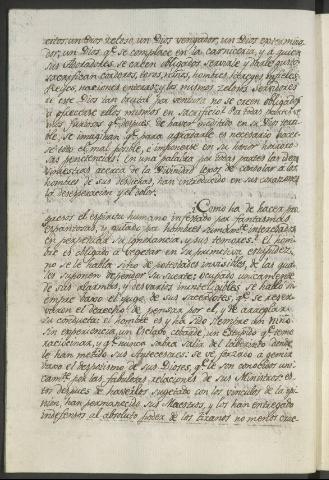 celos, un Dios zeloso, un Dios vengador, un Dios extermina-
dor, un Dios qe se complace en la carniceria, y a quien
sus Adoradores se creen obligados servirle a su gusto:
sacrifican corderos, toros, niños, hombres, hereges, infieles,
Reyes, naciones enteras: y los mismos zelosos servidores
de ese Dios tan brutal por ventura no se creen obligados
a ofrecerse ellos mismos en sacrificio? Por todas partes se
ven qe despues de haver meditado en su Dios terri-
ble, se imaginan qe para agradarle es necesario hacer-
se todo el mal posible, e imponerse en su honor
penitencias. En una palabra por todas partes las ideas
acerca de la Divinidad lejos de consolar a los
hombres de sus desdichas, han introducido en sus corazones
la desesperacion y el dolor.
¿Como ha de hacer pro-
gresos el espiritu humano infestado por fantasmas
espantosos, y guiado por hombres interesados
en perpetuar su ignorancia, y sus temores? El hom-
bre es obligado a vegetar en su primitiva estupidez:
no se le habla sino de potestades invisibles, de las qua-
les suponen depender su suerte: ocupado unicamente
de sus alarmas, y desvarios inintelegibles se halló si-
empre bajo el yugo de sus Sacerdotes, qe se reser-
varon el derecho de pensar por el, y de arreglar
su conducta: el hombre es y ha sido siempre un niño
sin experiencia, un Esclavo cobarde, un Estupido qe teme
raciocinar, y qe nunca sabrá salir del laberinto donde
le han metido sus Antecesores. Se ve forzado a gemir
bajo el despotismo de sus Dioses, qe le son conocidos uni-
camte por las fabulosas relaciones de sus Ministros: es-
tos despues de haverlos sugetado con los vinculos de la opi-
nion, han permanecido sus Maestros, y los han entregado
indefensos al absoluto poder de los tiranos no menos crue-